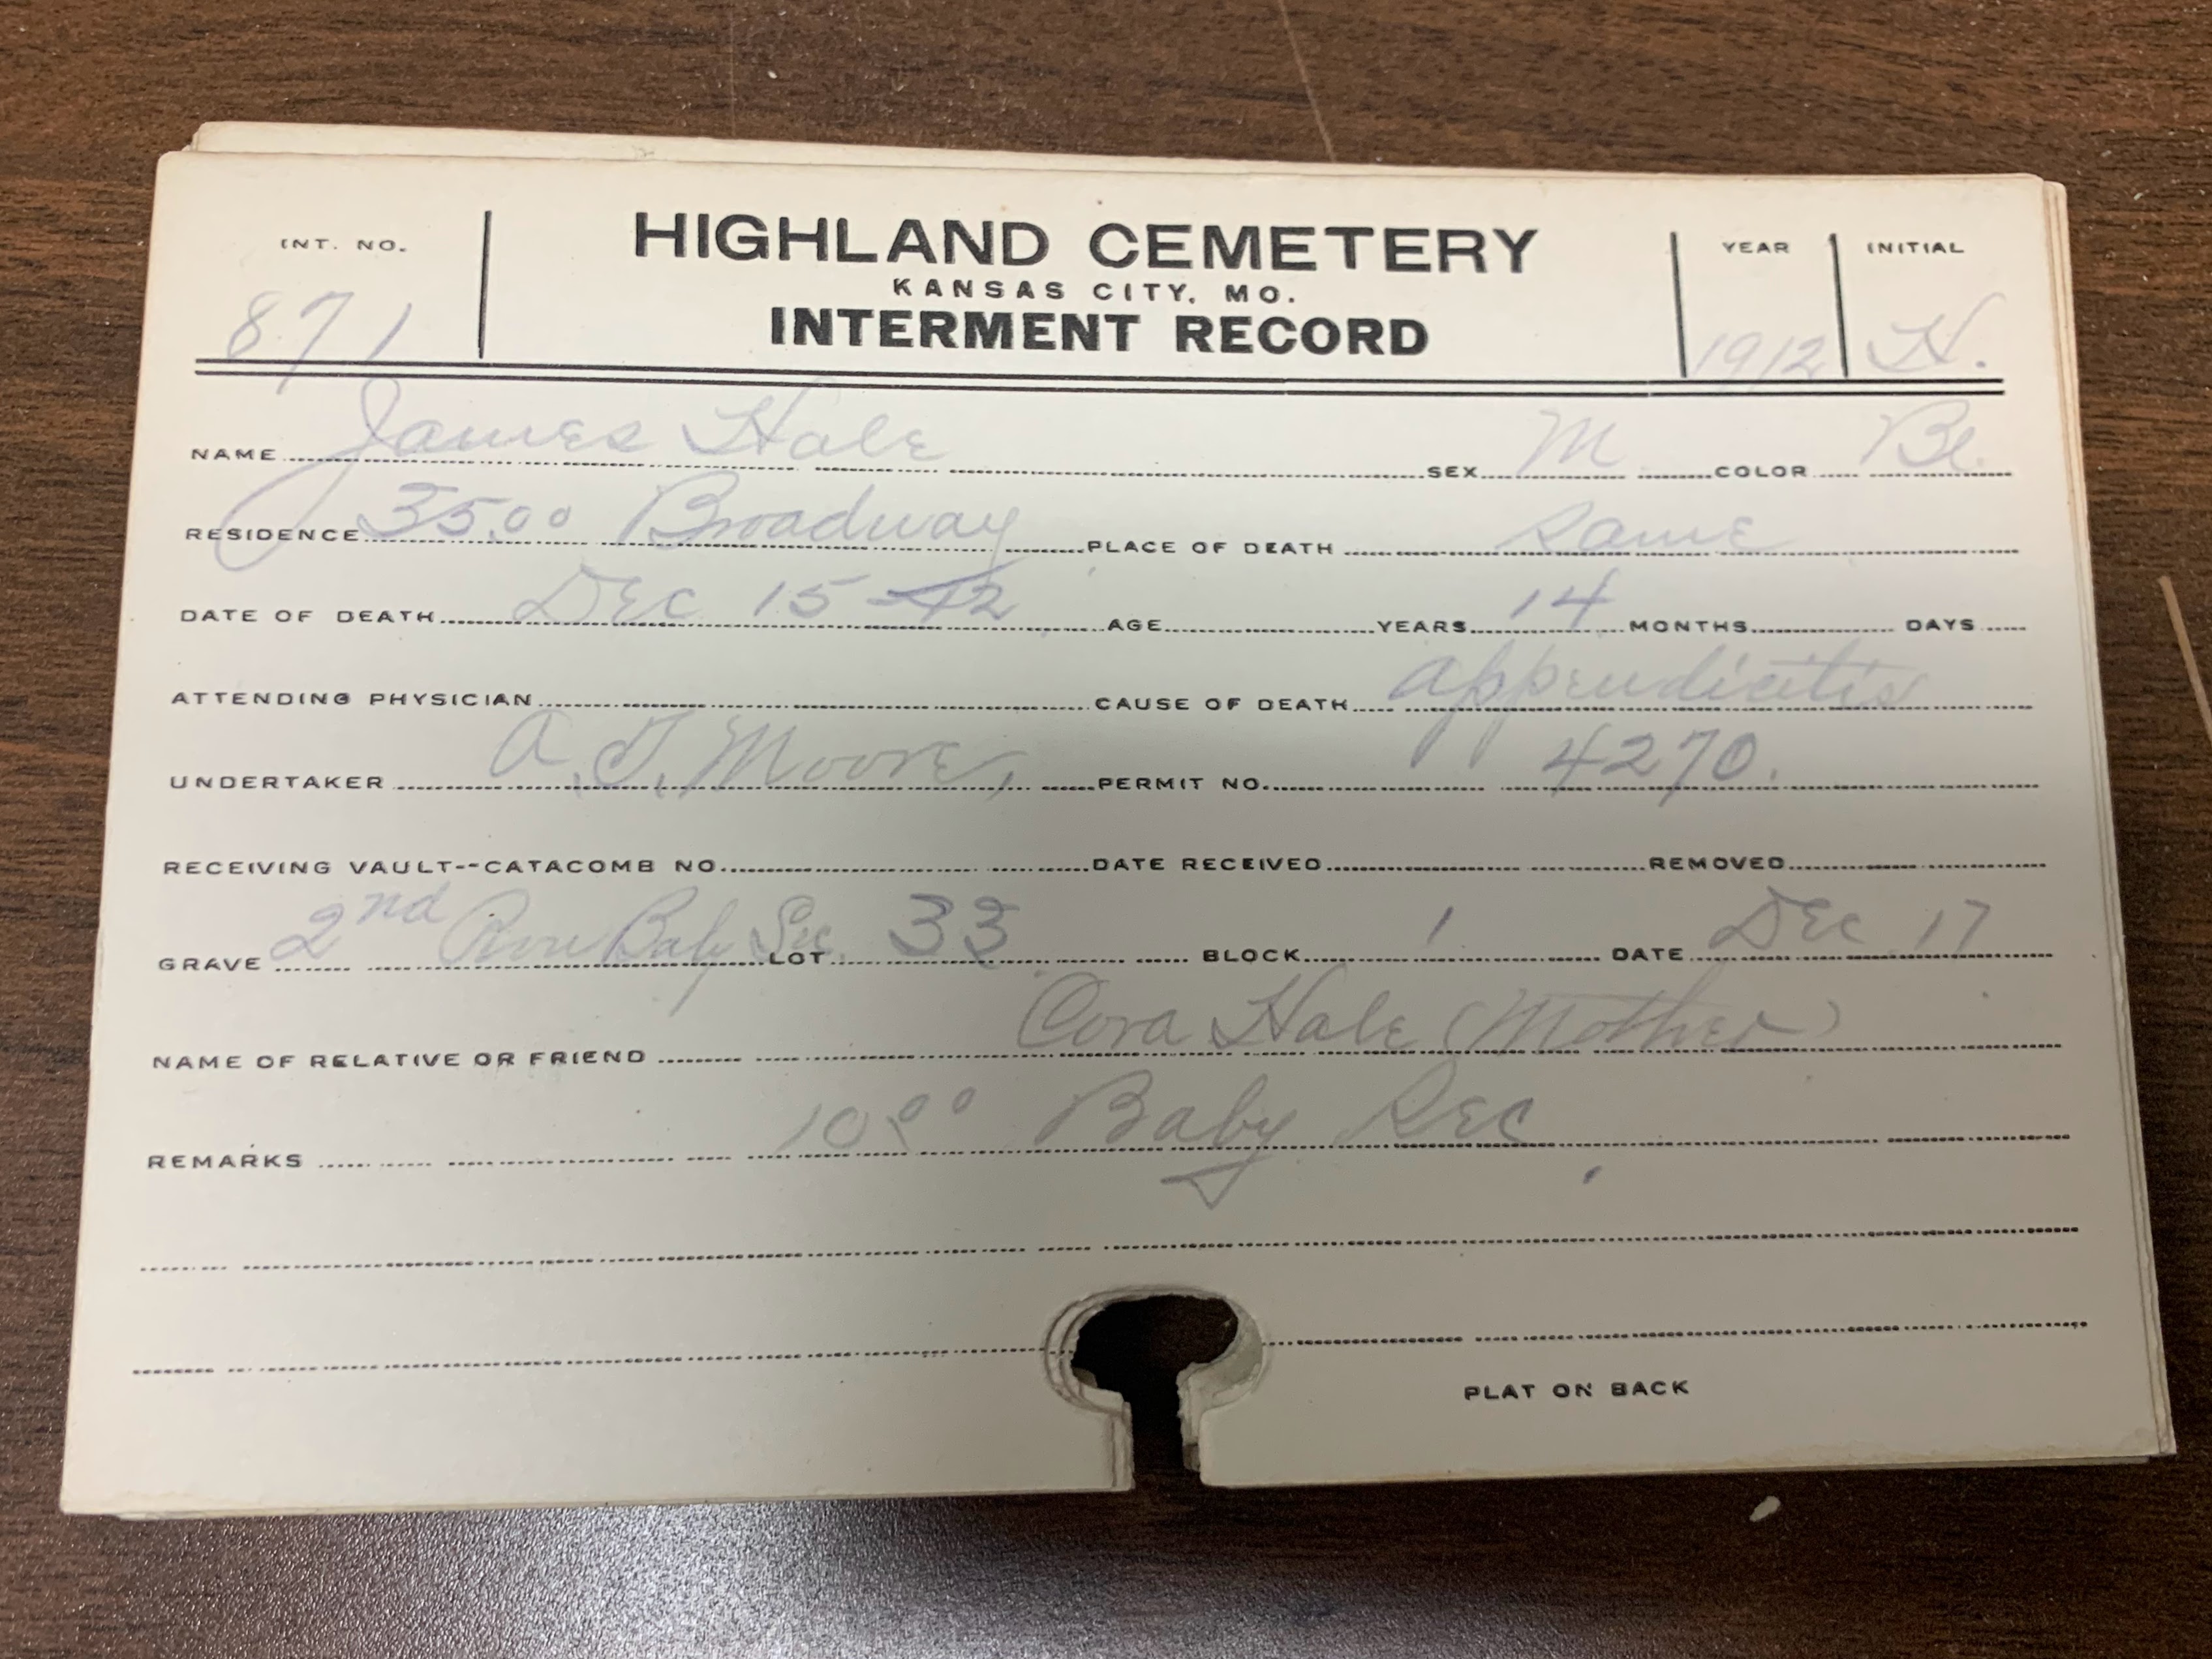 INT. NO. HIGHLAND CEMETERY YEAR INITIAL
KANSAS CITY, MO.
871 INTERMENT RECORD 1912 H.
NAME James Hale SEX M COLOR Bl.
RESIDENCE 35.00 Broadway PLACE OF DEATH Same
DATE OF DEATH Dec 15-12 AGE YEARS 14 MONTHS DAYS
ATTENDING PHYSICIAN CAUSE OF DEATH appendicitis
UNDERTAKER A. T. Moore, PERMIT NO. 4270.
RECEIVING VAULT--CATACOMB NO. DATE RECEIVED REMOVED
GRAVE 2nd Row Baby Sec. LOT 33 BLOCK 1 DATE Dec 17
NAME OF RELATIVE OR FRIEND Cora Hale (Mother)
REMARKS 10.00 Baby Rec
PLAT ON BACK